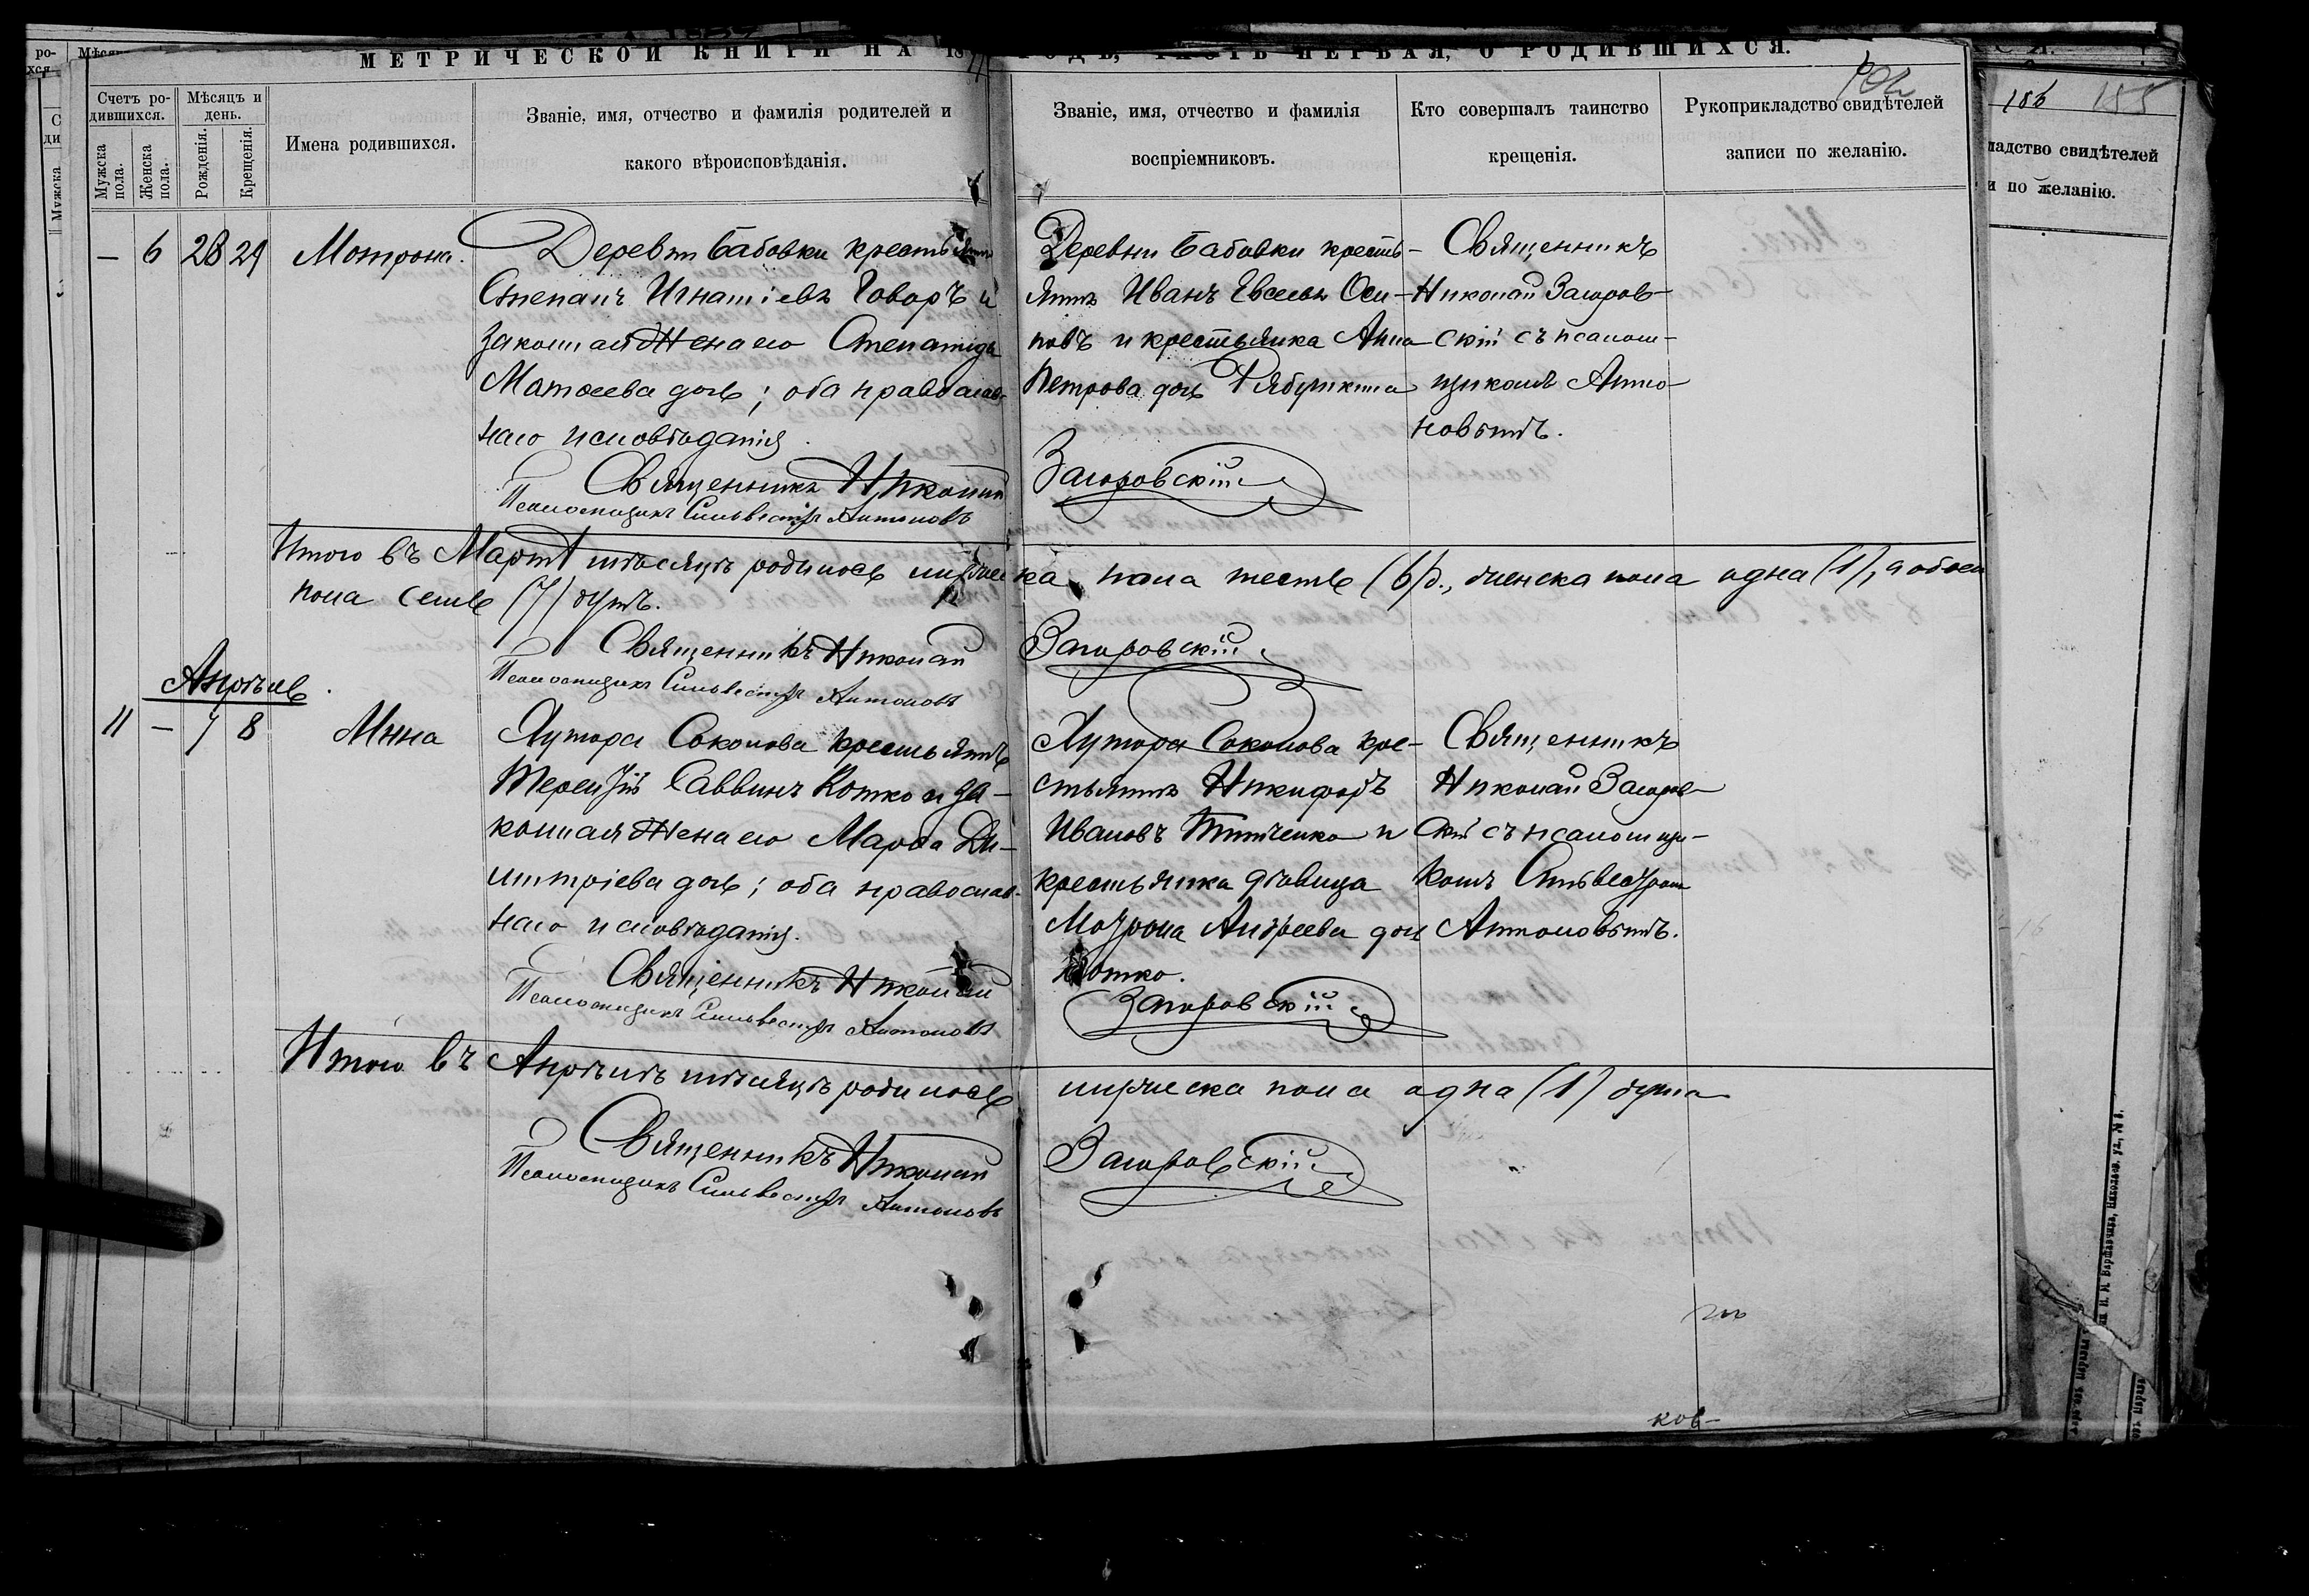 МЕТРИЧЕСКОЙ КНИГИ НА 18 ГОДЪ, ЧАСТЬ ПЕРВАЯ, О РОДИВШИХСЯ.
186 155
Счетъ родившихся.
Мѣсяцъ и день.
Мужска пола.
Женска пола.
Рожденія.
Крещенія.
Имена родившихся.
Званіе, имя, отчество и фамилія родителей и
какого вѣроисповѣданія.
Званіе, имя, отчество и фамилія
воспріемниковъ.
Кто совершалъ таинство
крещенія.
Рукоприкладство свидѣтелей
записи по желанію.
ладство свидѣтелей
и по желанію.
— 6 28 29 Мотрона.
Деревни Бабовки крестьянинъ
Степанъ Игнатіевъ Говоръ и
законная жена его Степанида
Матѳеева дочь; оба православ-
наго исповѣданія.
Деревни Бабовки кресть-
янинъ Иванъ Евсеевъ Оси-
повъ и крестьянка Анна
Петрова дочь Рябушкина
Священникъ
Николай Загоров-
скій съ псалом-
щикомъ Анто-
новымъ.
Священникъ Николай Загоровскій
Псаломщикъ Сильвестръ Антоновъ
Итого въ Мартѣ мѣсяцѣ родилось мужеска пола шесть (6) д., женска пола одна (1), а обоего
пола семь (7) душъ.
Священникъ Николай Загоровскій
Псаломщикъ Сильвестръ Антоновъ
Апрѣль
11 — 7 8
Хутора Соколова крестьянинъ
Терентій Саввинъ Котко и за-
конная жена его Марѳа Ди-
митріева дочь; оба православ-
наго исповѣданія.
Хутора Соколова кре-
стьянинъ Никифоръ
Ивановъ и
крестьянка дѣвица
Мотрона Андреева дочь
Котко.
Священникъ
Николай Загоров-
скій съ псаломщи-
комъ Сильвестромъ
Антоновымъ.
Священникъ Николай Загоровскій
Псаломщикъ Сильвестръ Антоновъ
Итого въ Апрѣлѣ мѣсяцѣ родилось мужеска пола одна (1) душа
Священникъ Николай Загоровскій
Псаломщикъ Сильвестръ Антоновъ
ков-